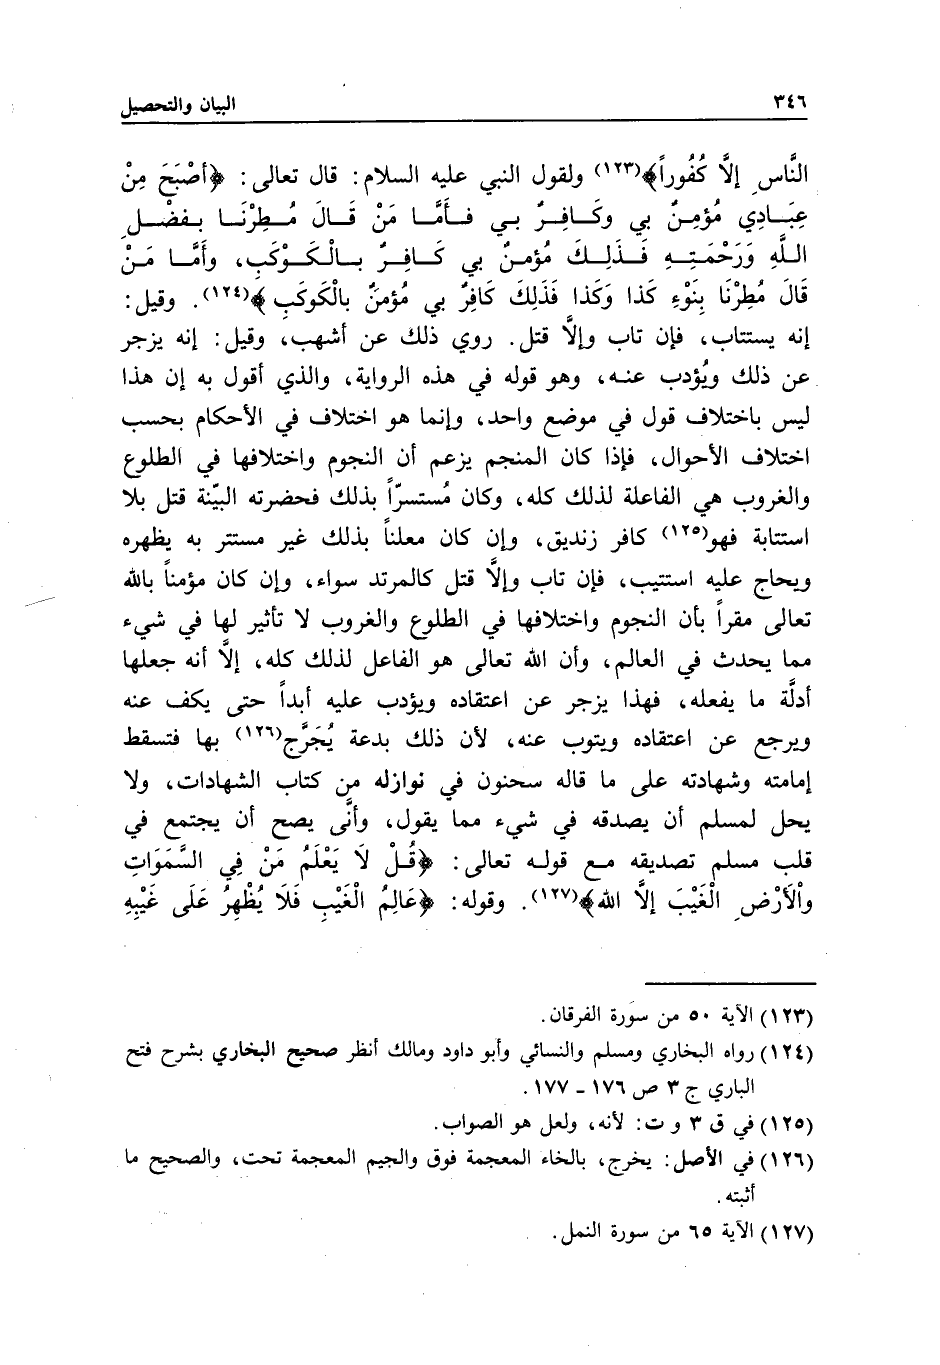 ٣٤٦
البيان والتحصيل
النَّاسِ إلَّا كُفُوراً﴾(١٢٣) ولقول النبي عليه السلام: قال تعالى: ﴿أصْبَحَ مِنْ
عِبَـادِي مُؤمِـنٌ بي وكَـافِـرٌ بـي فـأمَّـا مَنْ قَـالَ مُـطِرْنَـا بـفضْـلِ
اللَّهِ وَرَحْمَتِـهِ فَـذَلِـكَ مُؤمـنٌ بي كَـافِـرٌ بـالْـكَـوْكَبِ، وأمَّـا مَـنْ
قَالَ مُطِرْنَا بِنَوْءِ كَذا وَكَذا فَذَلِكَ كَافِرٌ بي مُؤمنٌ بالْكَوكَبِ﴾(١٢٤). وقيل:
إنه يستتاب، فإن تاب وإلَّا قتل. روي ذلك عن أشهب، وقيل: إنه يزجر
عن ذلك ويُؤدب عنـه، وهو قوله في هذه الرواية، والذي أقول به إن هذا
ليس باختلاف قول في موضع واحد، وإنما هو اختلاف في الأحكام بحسب
اختلاف الأحوال، فإذا كان المنجم يزعم أن النجوم واختلافها في الطلوع
والغروب هي الفاعلة لذلك كله، وكان مُستسرّاً بذلك فحضرته البيّنة قتل بلا
استتابة فهو(١٢٥) كافر زنديق، وإن كان معلناً بذلك غير مستتر به يظهره
ويحاج عليه استتيب، فإن تاب وإلَّا قتل كالمرتد سواء، وإن كان مؤمناً بالله
تعالى مقراً بأن النجوم واختلافها في الطلوع والغروب لا تأثير لها في شيء
مما يحدث في العالم، وأن الله تعالى هو الفاعل لذلك كله، إلَّا أنه جعلها
أدلَّة ما يفعله، فهذا يزجر عن اعتقاده ويؤدب عليه أبداً حتى يكف عنه
ويرجع عن اعتقاده ويتوب عنه، لأن ذلك بدعة يُجَرَّح(١٢٦) بها فتسقط
إمامته وشهادته على ما قاله سحنون في نوازله من كتاب الشهادات، ولا
يحل لمسلم أن يصدقه في شيء مما يقول، وأنَّى يصح أن يجتمع في
قلب مسلم تصديقه مـع قولـه تعالى: ﴿قُـلْ لَا يَعْلَمُ مَنْ فِي السَّمَوَاتِ
والْأَرْضِ الْغَيْبَ إلَّا الله﴾(١٢٧). وقوله: ﴿عَالِمُ الْغَيْبِ فَلَا يُظْهِرُ عَلَى غَيْبِهِ
(١٢٣) الآية ٥٠ من سورة الفرقان.
(١٢٤) رواه البخاري ومسلم والنسائي وأبو داود ومالك أنظر صحيح البخاري بشرح فتح
الباري ج ٣ ص ١٧٦ - ١٧٧.
(١٢٥) في ق ٣ و ت: لأنه، ولعل هو الصواب.
(١٢٦) في الأصل: يخرج، بالخاء المعجمة فوق والجيم المعجمة تحت، والصحيح ما
أثبته.
(١٢٧) الآية ٦٥ من سورة النمل.